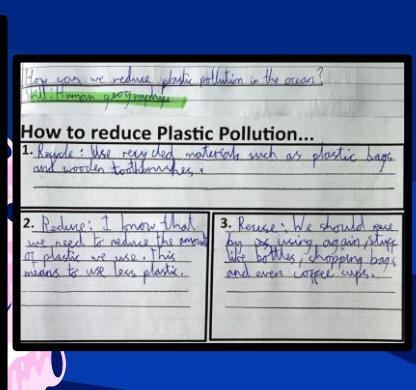 How can we reduce plastic pollution in the ocean?
Skill: Human geography
How to reduce Plastic Pollution...
1. Recycle: Use recycled materials such as plastic bags
and wooden toothbrushes.
2. Reduce: I know that
we need to reduce the amount
of plastic we use. This
means to use less plastic.
3. Reuse: We should reuse
by using again, stuff
like bottles, shopping bags
and even coffee cups.